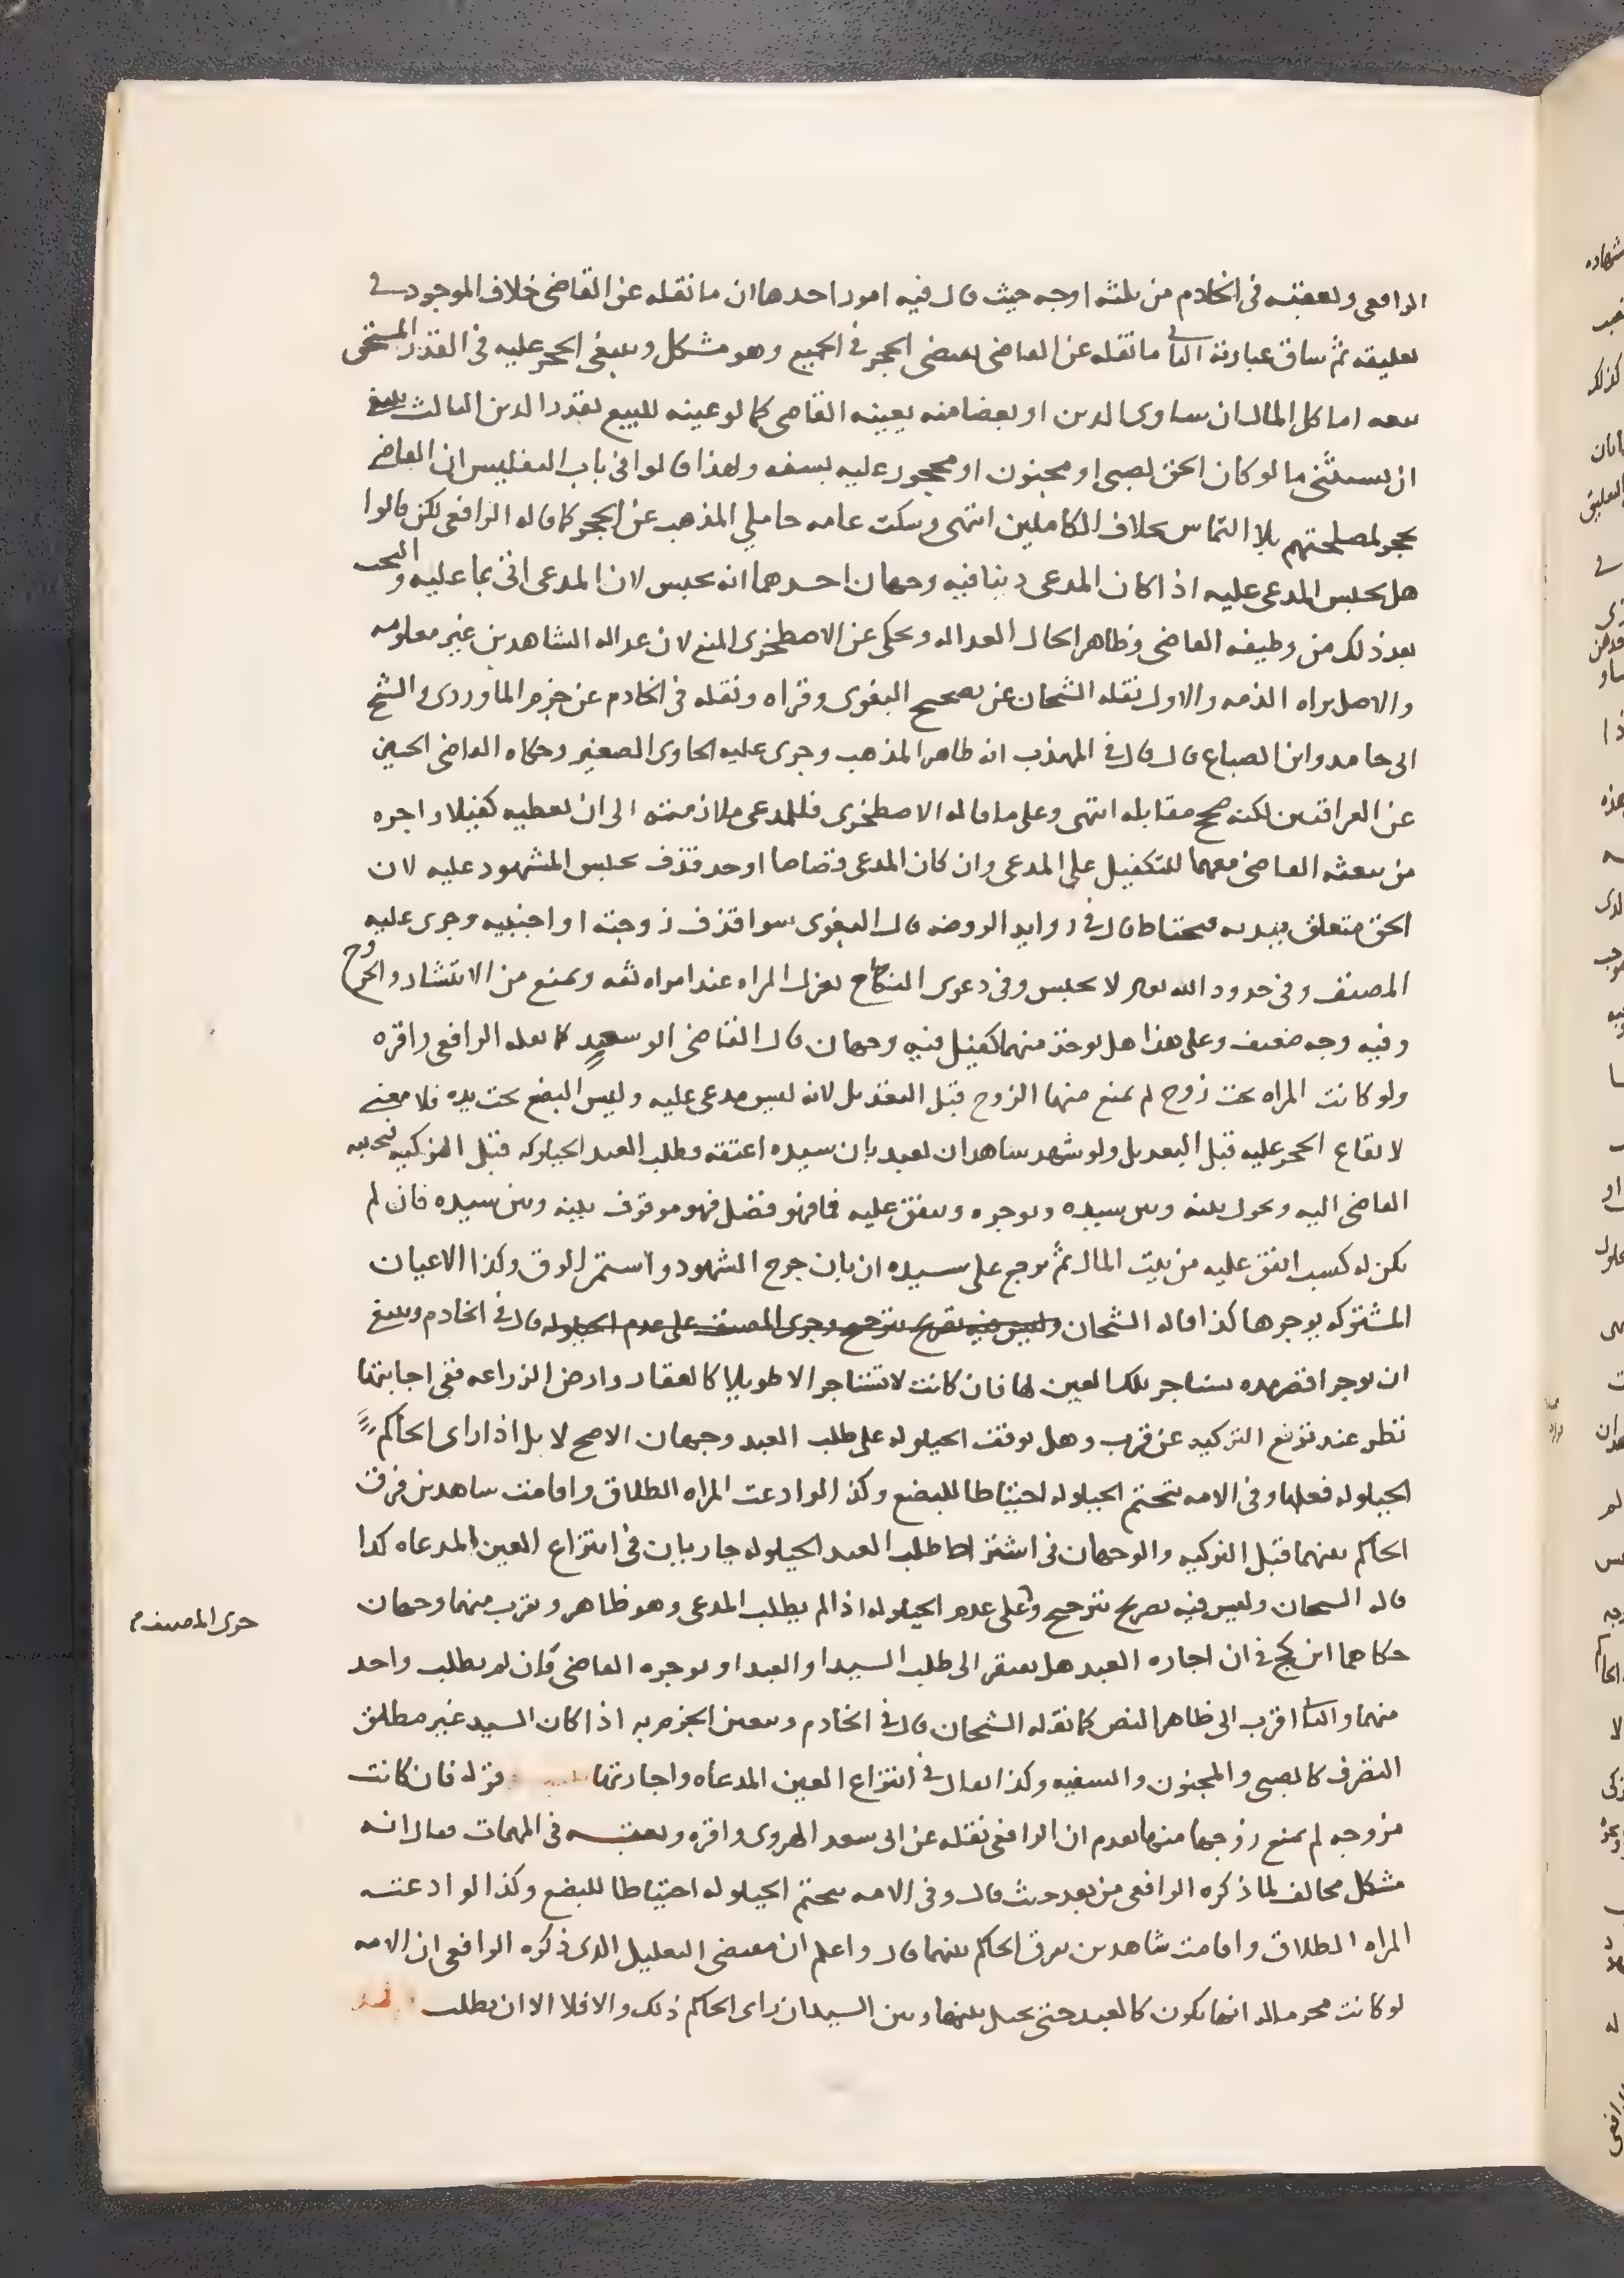 الرافعي وتعقبه في الخادم من ثلثه اوجه حيث قال فيه امور احدها ان ما نقله عن القاضي خلاف الموجود في
تعليقه ثم ساق عبارته الثاني ما نقله عن القاضي يقتضي الحجر في الجميع وهو مشكل وينبغي الحجر عليه في القدر المستحق
بيعه اما كل المال ان ساوى الدين او بعضا منه يعينه القاضي كما لو عينه للبيع بقدر الدين الثالث ينبغي
ان يستثنى ما لو كان الحق لصبي او مجنون او محجور عليه بسفه ولهذا قالوا في باب التفليس ان القاضي
يحجر لمصلحتهم بلا التماس بخلاف الكاملين انتهى وسكت عامه حاملي المذهب عن الحجر كما قاله الرافعي لكن قالوا
هل يحبس المدعى عليه اذا كان المدعى دينا فيه وجهان احدهما انه يحبس لان المدعي اتى بما عليه والبحث
بعد ذلك من وظيفه القاضي وظاهر الحال العداله ويحكى عن الاصطخري المنع لان عداله الشاهدين غير معلومه
والاصل براه الذمه والاول نقله الشيخان عن تصحيح البغوي وقراه ونقله في الخادم عن جزم الماوردي والشيخ
ابي حامد وابن الصباغ قال قال في المهذب انه ظاهر المذهب وجرى عليه الحاوي الصغير وحكاه القاضي الحسين
عن العراقيين لكنه صحح مقابله انتهى وعلى ما قاله الاصطخري فللمدعي ملازمته الى ان يعطيه كفيلا واجره
من يبعثه القاضي معهما للتكفيل على المدعي وان كان المدعى قصاصا او حد قذف يحبس المشهود عليه لان
الحق متعلق ببدنه فيحتاط قال في زوايد الروضه قال البغوي سوا قذف زوجته او اجنبيه وجرى عليه
المصنف وفي حدود الله تعالى لا يحبس وفي دعوى النكاح تعزل المراه عند امراه ثقه وتمنع من الانتشار والخروج
وفيه وجه ضعيف وعلى هذا هل يوخذ منها كفيل فيه وجهان قال القاضي ابو سعيد كما نقله الرافعي واقره
ولو كانت المراه تحت زوج لم يمنع منها الزوج قبل التعديل لانه ليس مدعى عليه وليس البضع تحت يده فلا معنى
لايقاع الحجر عليه قبل التعديل ولو شهد شاهدان لعبد بان سيده اعتقه وطلب العبد الحيلوله قبل التزكيه فيجيبه
القاضي اليه ويحول بينه وبين سيده ويوجره وينفق عليه فما فضل فهو موقوف بينه وبين سيده فان لم
يكن له كسب انفق عليه من بيت المال ثم يرجع على سيده ان بان جرح الشهود واستمر الرق وكذا الاعيان
المشتركه يوجرها كذا قاله الشيخان وليس فيه تصريح بترجيح وجرى المصنف على عدم الحيلوله قال في الخادم وينبغي
ان يوجر اقصر مده تستاجر تلك العين لها فان كانت لا تستاجر الا طويلا كالعقار وارض الزراعه ففي اجابتها
نظر عند توقع التزكيه عن قرب وهل توقف الحيلوله على طلب العبد وجهان الاصح لا بل اذا راى الحاكم
الحيلوله فعلها وفي الامه تتحتم الحيلوله احتياطا للبضع وكذا لو ادعت المراه الطلاق واقامت شاهدين فرق
الحاكم بينهما قبل التزكيه والوجهان في اشتراط طلب العبد الحيلوله جاريان في انتزاع العين المدعاه كذا
قاله الشيخان وليس فيه تصريح بترجيح وعلى عدم الحيلوله اذا لم يطلب المدعي وهو ظاهر ويقرب منهما وجهان
جرى المصنف
حكاهما ابن كج في ان اجاره العبد هل يفتقر الى طلب السيد او العبد او يوجره القاضي وان لم يطلب واحد
منهما والثاني اقرب الى ظاهر النص كما نقله الشيخان قال في الخادم ويتعين الجزم به اذا كان السيد غير مطلق
التصرف كالصبي والمجنون والسفيه وكذا يقال في انتزاع العين المدعاه واجارتها قوله فان كانت
مزوجه لم يمنع زوجها منها تقدم ان الرافعي نقله عن ابي سعد الهروي واقره وتعقبه في المهمات فقال انه
مشكل مخالف لما ذكره الرافعي من بعد حيث قال وفي الامه تتحتم الحيلوله احتياطا للبضع وكذا لو ادعت
المراه الطلاق واقامت شاهدين يفرق الحاكم بينهما قال واعلم ان مقتضى التعليل الذي ذكره الرافعي ان الامه
لو كانت محرما له انها تكون كالعبد حتى يحيل بينها وبين السيد ان راى الحاكم ذلك والا فلا الا ان يطلب